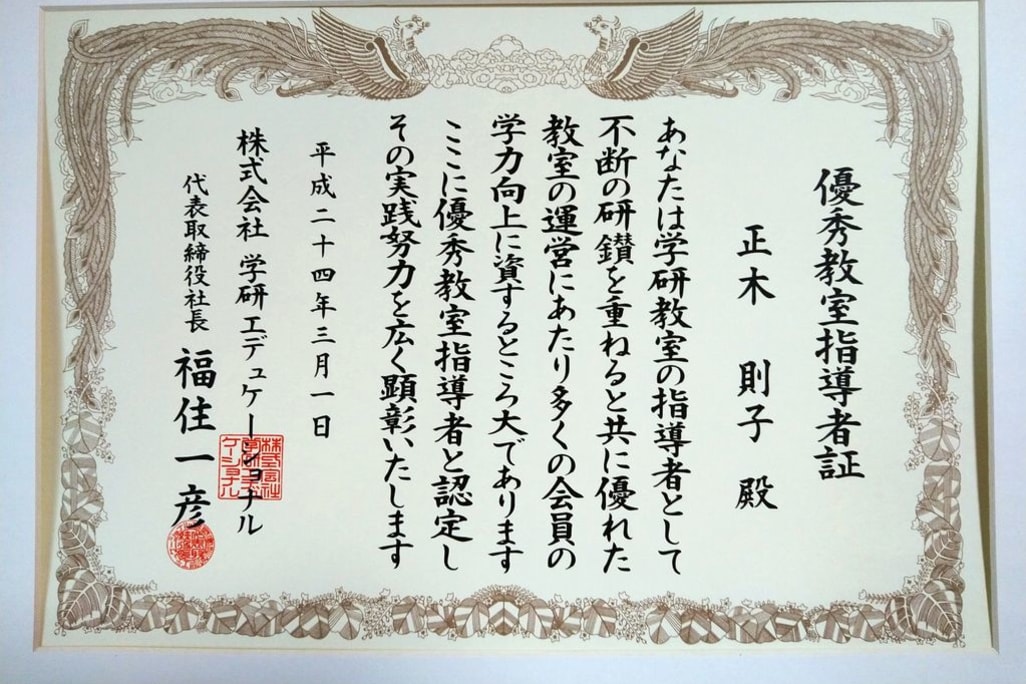 優秀教室指導者証
正木 則子 殿
あなたは学研教室の指導者として
不断の研鑚を重ねると共に優れた
教室の運営にあたり多くの会員の
学力向上に資するところ大であります
ここに優秀教室指導者と認定し
その実践努力を広く顕彰いたします
平成二十四年三月一日
株式会社 学研エデュケーショナル
代表取締役社長 福住一彦